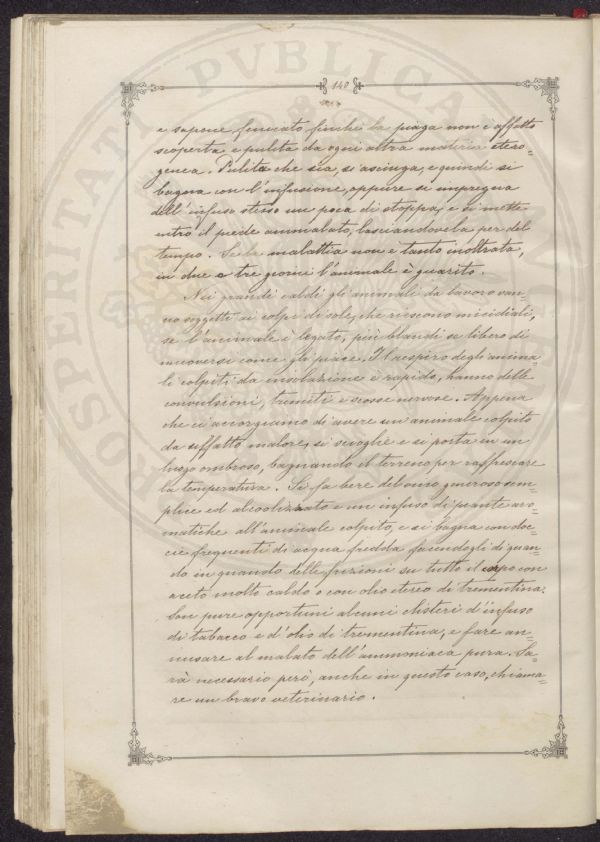 140
e sapone fenicato finchè la piaga non è affatto
scoperta e pulita da ogni altra materia etero=
genea. Pulita che sia, si asciuga, e quindi si
bagna con l'infusione, oppure si impregna
dell'infuso stesso un poca di stoppa, e si mette
entro il piede ammalato, lasciandovela per del
tempo. Se la malattia non è tanto inoltrata,
in due o tre giorni l'animale è guarito.
Nei grandi caldi gli animali da lavoro van=
no soggetti ai colpi di sole, che riescono micidiali,
se l'animale è legato, più blandi se libero di
muoversi come gli piace. Il respiro degli anima=
li colpiti da insolazione è rapido, hanno delle
convulsioni, tremiti e scosse nervose. Appena
che ci accorgiamo di avere un animale colpito
da siffatto malore, si scioglie e si porta in un
luogo ombroso, bagnando il terreno per raffrescare
la temperatura. Si fa bere del vino generoso sem=
plice ed alcoolizzato e un infuso di piante aro=
matiche all'animale colpito, e si bagna con doc=
cie frequenti di acqua fredda facendogli di quan=
do in quando delle frizioni su tutto il corpo con
aceto molto caldo o con olio etereo di trementina.
Son pure opportuni alcuni clisteri d'infuso
di tabacco e d'olio di trementina, e fare an=
nusare al malato dell'ammoniaca pura. Sa=
rà necessario però, anche in questo caso, chiama=
re un bravo veterinario.
PROSPERITATI PVBLICAE